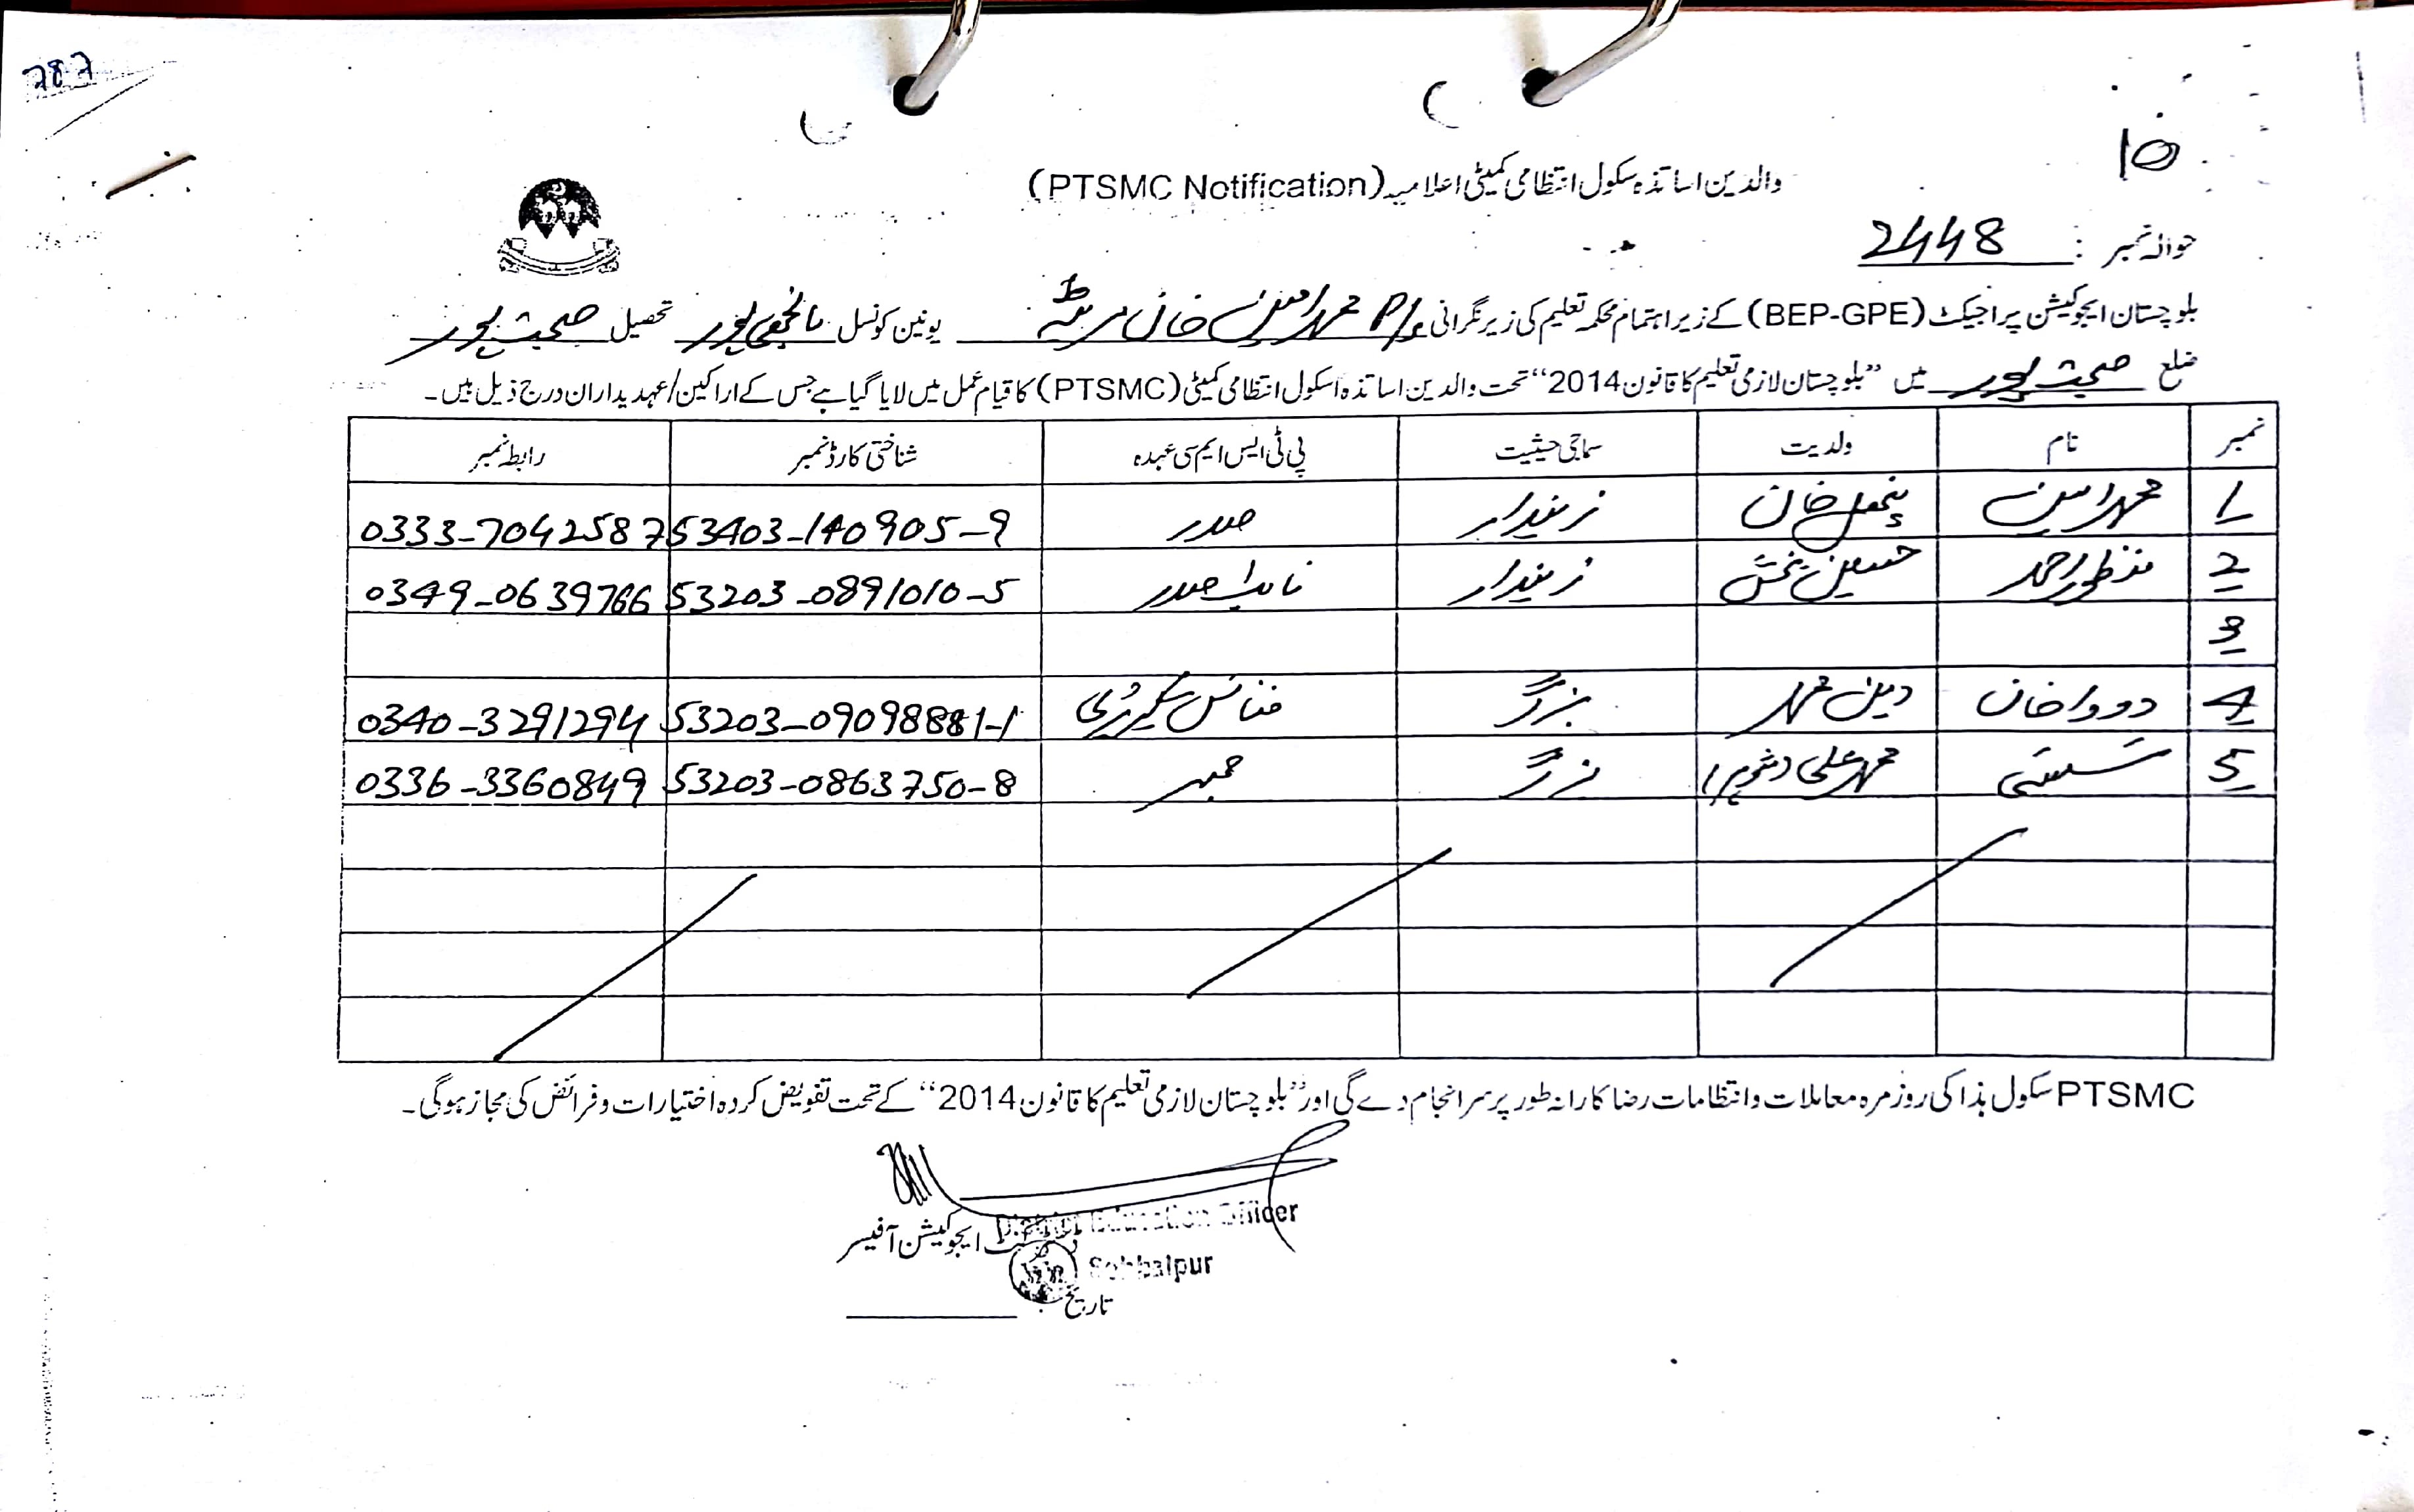 787
10
والدین اساتذہ سکول انتظامی کمیٹی اعلامیہ (PTSMC Notification)
حوالہ نمبر : 2448
بلوچستان ایجوکیشن پراجیکٹ (BEP-GPE) کے زیر اہتمام محکمہ تعلیم کی زیر نگرانی P/S محمد امین خان یونین کونسل مانجھی پور تحصیل صحبت پور
ضلع صحبت پور میں "بلوچستان لازمی تعلیم کا قانون 2014" تحت والدین اساتذہ اسکول انتظامی کمیٹی (PTSMC) کا قیام عمل میں لایا گیا ہے جس کے اراکین/عہدیداران درج ذیل ہیں۔
نمبر نام ولدیت سماجی حیثیت پی ٹی ایس ایم سی عہدہ شناختی کارڈ نمبر رابطہ نمبر
1 محمد امین خان زمیندار صدر 53403-140905-9 0333-7042587
2 منظور احمد حسین بخش زمیندار نائب صدر 53203-0891010-5 0349-0639766
3
4 دودا خان دین محمد بزرگ فنانس سیکریٹری 53203-09098881-1 0340-3291294
5 سسئی محمد علی (شوہر) بزرگ ممبر 53203-0863750-8 0336-3360849
PTSMC سکول ہذا کی روز مرہ معاملات و انتظامات رضا کارانہ طور پر سرانجام دے گی اور "بلوچستان لازمی تعلیم کا قانون 2014" کے تحت تفویض کردہ اختیارات و فرائض کی مجاز ہوگی۔
District Education Officer
ایجوکیشن آفیسر
Sohbatpur
تاریخ